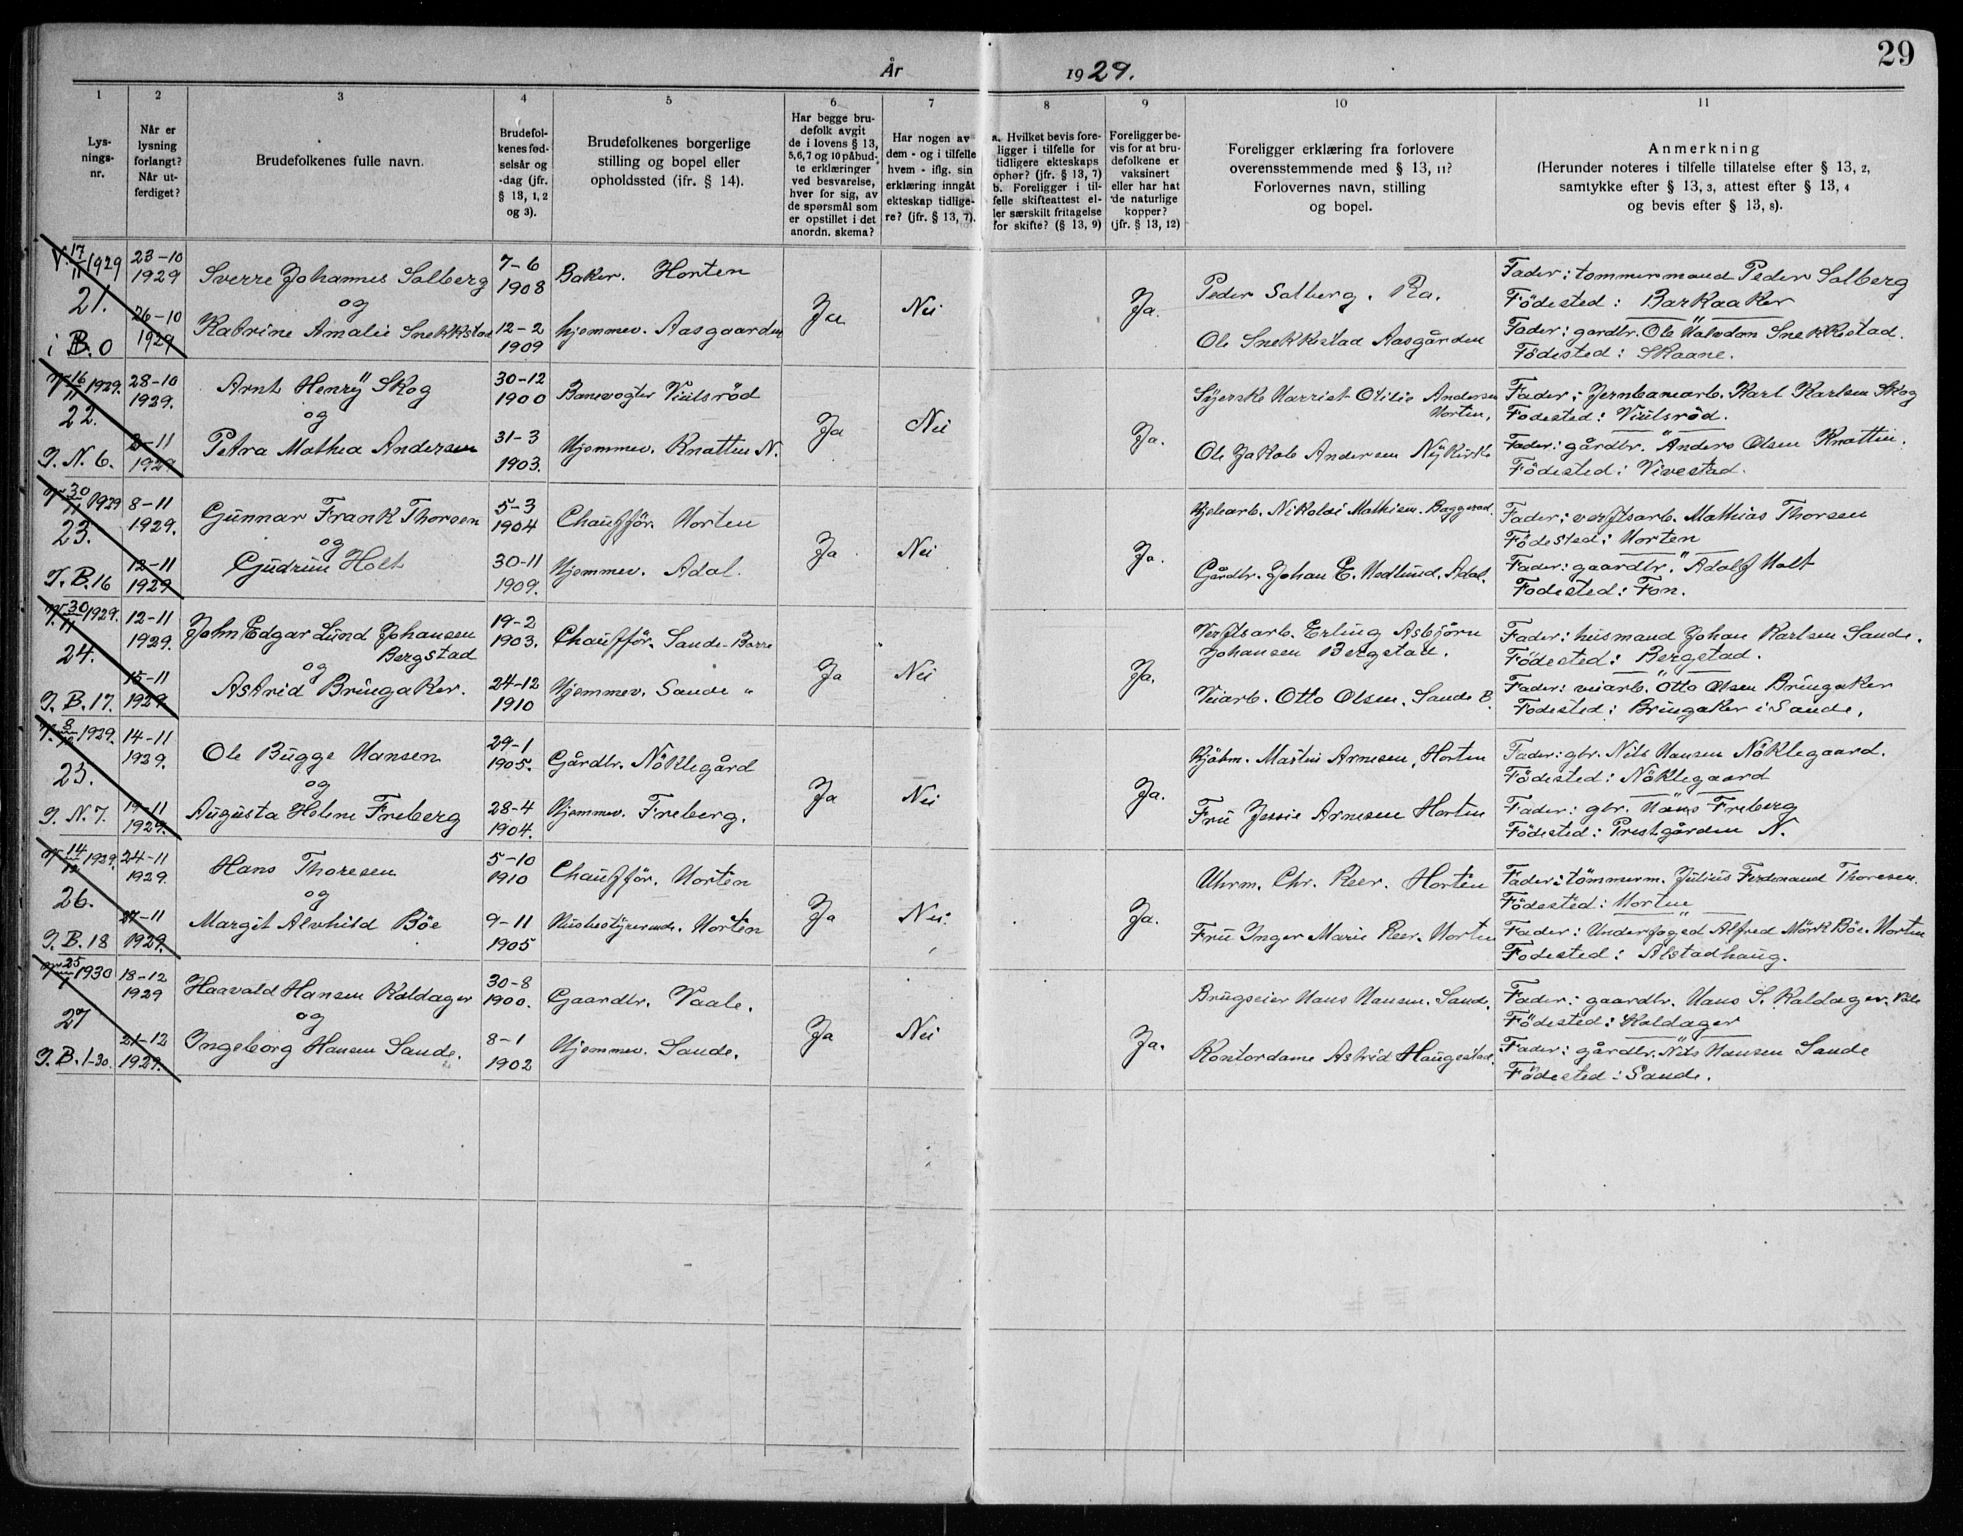 29
År 1929.
1 2 3 4 5 6 7 8 9 10 11
Lys-
nings-
nr.
Når er
lysning
forlangt?
Når ut-
ferdiget?
Brudefolkenes fulle navn.
Brudefol-
kenes fød-
selsår og
-dag (jfr.
§ 13, 1, 2
og 3).
Brudefolkenes borgerlige
stilling og bopel eller
opholdssted (jfr. § 14).
Har begge bru-
defolk avgit
de i lovens § 13,
5,6,7 og 10 påbud-
te erklæringer
ved besvarelse,
hver for sig, av
de spørsmål som
er opstillet i det
anordn. skema?
Har nogen av
dem - og i tilfelle
hvem - iflg. sin
erklæring inngått
ekteskap tidlige-
re? (jfr. § 13, 7).
a. Hvilket bevis fore-
ligger i tilfelle for
tidligere ekteskaps
ophør? (jfr. § 13, 7)
b. Foreligger i til-
felle skifteattest el-
ler særskilt fritagelse
for skifte? (§ 13, 9)
Foreligger be-
vis for at bru-
defolkene er
vaksinert
eller har hat
de naturlige
kopper?
(jfr. § 13, 12)
Foreligger erklæring fra forlovere
overensstemmende med § 13, 11?
Forlovernes navn, stilling
og bopel.
Anmerkning
(Herunder noteres i tilfelle tillatelse efter § 13, 2,
samtykke efter § 13, 3, attest efter § 13, 4
og bevis efter § 13, 8).
V. 17/11 1929
21.
i B. 0
23-10
1929
26-10
1929
Sverre Johannes Solberg
og
Katrine Amalie Snekkstad
7-6
1908
12-2
1909
Baker. Horten
hjemmev. Aasgaarden
Ja
Nei
Ja.
Peder Solberg. Ra.
Ole Snekkestad Aasgården
Fader: tømmermand Peder Solberg
Födested: Barkaaker
Fader: gardbr. Ole Halvdan Snekkestad.
Födested: Skaane.
V. 16/11 1929.
22.
I. N. 6.
28-10
1929.
2-11
1929
Arnt Henry Skog
og
Petra Mathea Andersen
30-12
1900
31-3
1903.
Banevogter Viulsröd
Hjemmev. Knatten N.
Ja
Nei
Ja.
Syerske Harriet Otilie Andersen
Horten,
Ole Jakob Andersen Nykirke
Fader: Jernbanearb. Karl Karlsen Skog
Födested: Viulsröd.
Fader: gårdbr. Anders Olsen Knatten.
Födested: Vivestad.
V. 30/11 1929
23.
I. B. 16
8-11
1929.
12-11
1929
Gunnar Frank Thorsen
og
Gudrun Holt
5-3
1904
30-11
1909.
Chauffför. Horten
Hjemmev. Adal.
Ja
Nei
Ja.
Hjelsarb. Nikolai Mathisen. Baggerød.
Gårdbr. Johan E. Hedlund. Adal.
Fader: verftsarb. Mathias Thorsen
Födested: Horten
Fader: gaardbr. Adolf Holt
Fodested: Fon.
V. 30/11 1929.
24.
I. B. 17.
12-11
1929.
15-11
1929
John Edgar Lund Johansen
Bergstad
og
Astrid Bringaker.
19-2
1903.
24-12
1910
Chauffför. Sande-Borre
Hjemmev. Sande "
Ja
Nei
Ja.
Verftsarb. Erling Asbjörn
Johansen Bergstad.
Veiarb. Otto Olsen. Sande B.
Fader: husmand Johan Karlsen Sande.
Födested: Bergstad.
Fader: veiarb. Otto Olsen Bringaker
Fodested: Bringaker i Sande,
V. 8/12 1929.
25.
I. N. 7.
14-11
1929.
19-11
1929.
Ole Bugge Hansen
og
Augusta Helene Freberg
29-1
1905.
28-4
1904.
Gårdbr. Nöklegård
Hjemmev. Freberg.
Ja
Nei
Ja.
Kjöbm. Martin Arnesen, Horten
Fru Jessie Arnesen Horten
Fader: gbr. Nils Hansen Nöklegaard.
Födested: Nöklegaard
Fader: gbr. Hans Freberg
Födested: Prestgården N.
V. 14/12 1929.
26.
I. B. 18
24-11
1929.
27-11
1929.
Hans Thoresen
og
Margit Alvhild Böe
5-10
1910
9-11
1905
Chauffför. Horten
Husbestyrerinde. Horten
Ja
Nei.
Ja.
Uhrm. Chr. Reer. Horten
Fru Inger Marie Reer. Horten
Fader: tömmerm. Julius Ferdinand Thoresen.
Födested: Horten
Fader: Underfoged Alfred Mörk Böe. Horten
Fodested: Alstadhaug.
V. 25/1 1930
27
I. B. 1-30.
18-12
1929
21-12
1929.
Haavald Hansen Kaldager
og
Ingeborg Hansen Sande.
30-8
1900.
8-1
1902
Gaardbr. Vaale.
Hjemmev. Sande.
Ja
Nei
Ja.
Brugseier Hans Hansen. Sande.
Kontordame Astrid Haugestad.
Fader: gaardbr. Hans S. Kaldager.
Födested: Kaldager
Fader: gårdbr. Nils Hansen Sande
Födested: Sande.